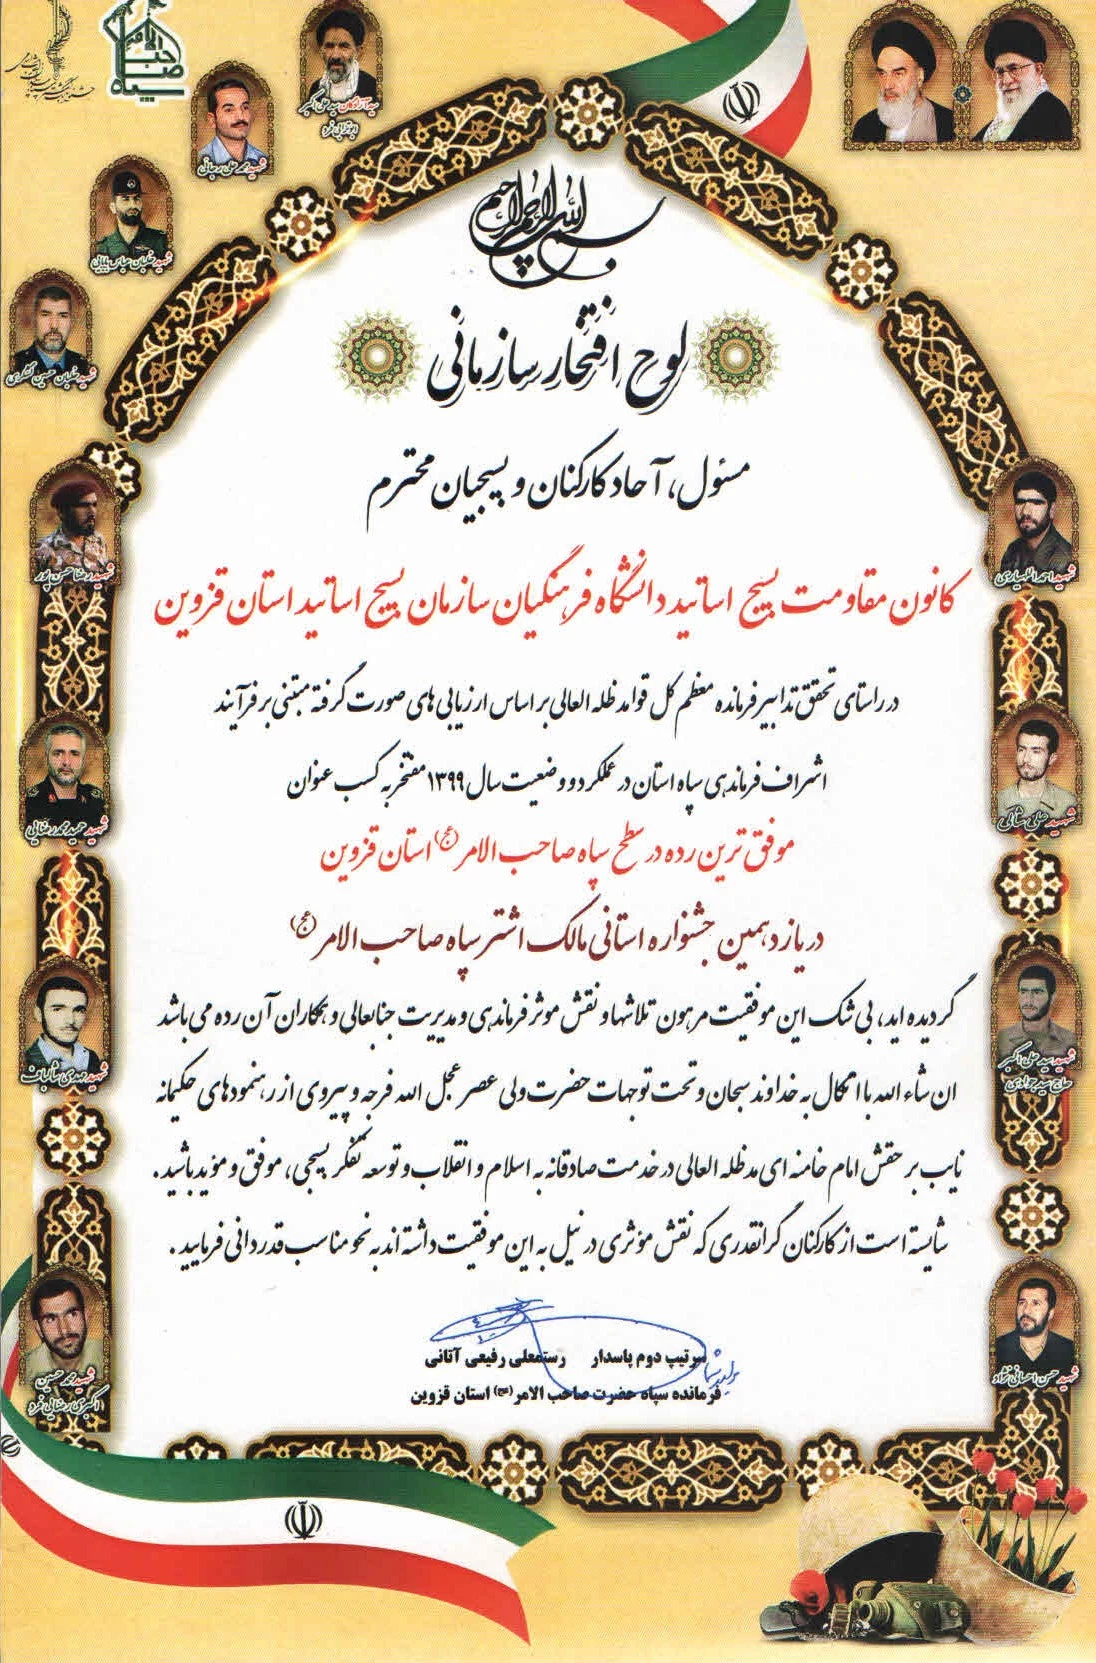 صاحب الامر
سپاه
سید آزادگان سید علی اکبر
ابوترابی فرد
شهید محمد علی رجائی
شهید خلبان عباس بابایی
شهید خلبان حسین لشگری
شهید رضا حسن پور
شهید حمید محمدرضایی
شهید مهدی شالباف
شهید محمد حسین
اکبری رضایی فرد
شهید احمد اللهیاری
شهید سید علی اکبر
حاج سید جوادی
شهید حسن احسانی نژاد
بسم الله الرحمن الرحیم
لوح افتخار سازمانی
مسئول، آحاد کارکنان و بسیجیان محترم
کانون مقاومت بسیج اساتید دانشگاه فرهنگیان سازمان بسیج اساتید استان قزوین
در راستای تحقق تدابیر فرمانده معظم کل قوا مد ظله العالی بر اساس ارزیابی های صورت گرفته مبتنی بر فرآیند
اشراف فرماندهی سپاه استان در عملکرد و وضعیت سال ۱۳۹۹ مفتخر به کسب عنوان
موفق ترین رده در سطح سپاه صاحب الامر (عج) استان قزوین
در یازدهمین جشنواره استانی مالک اشتر سپاه صاحب الامر (عج)
گردیده اید، بی شک این موفقیت مرهون تلاشها و نقش موثر فرماندهی و مدیریت جنابعالی و همکاران آن رده می باشد
ان شاء الله با اتکال به خداوند سبحان و تحت توجهات حضرت ولی عصر عجل الله فرجه و پیروی از رهنمودهای حکیمانه
نایب بر حقش امام خامنه ای مد ظله العالی در خدمت صادقانه به اسلام و انقلاب و توسعه تفکر بسیجی، موفق و مؤید باشید.
شایسته است از کارکنان گرانقدری که نقش مؤثری در نیل به این موفقیت داشته اند به نحو مناسب قدردانی فرمایید.
سرتیپ دوم پاسدار رستمعلی رفیعی آتانی
فرمانده سپاه حضرت صاحب الامر (عج) استان قزوین